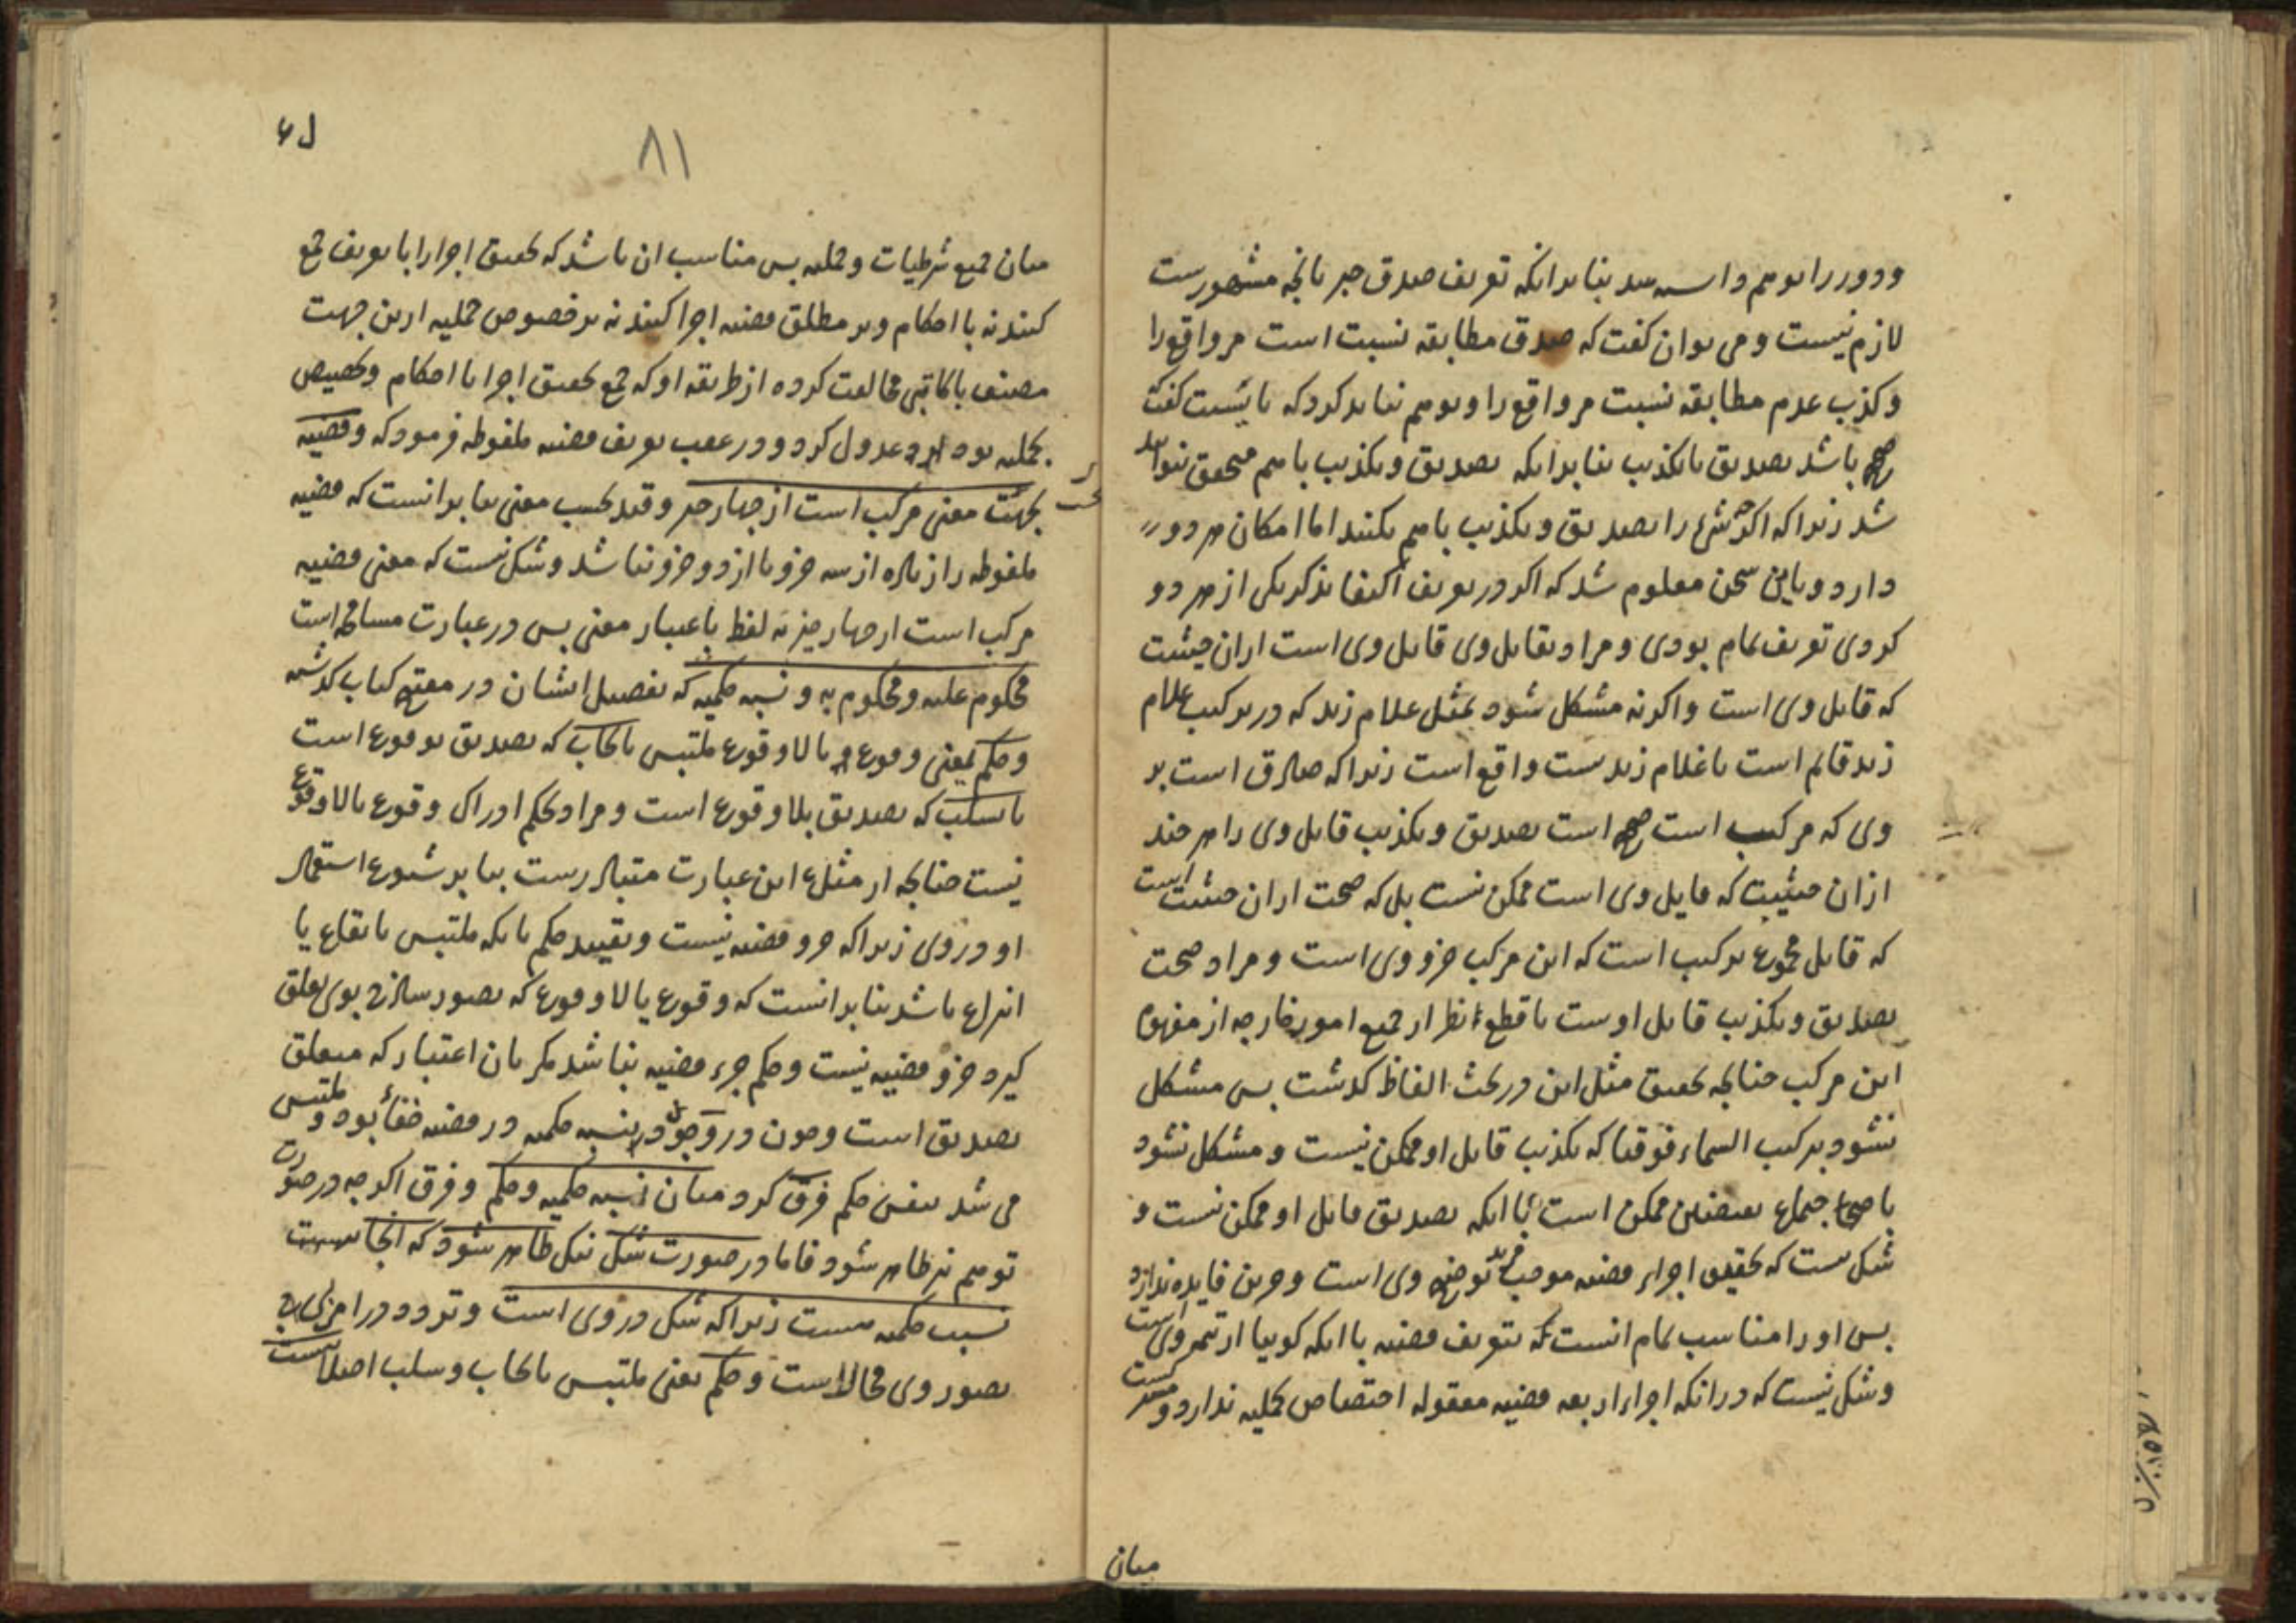 ودور را توهم بنا بر آنکه تعریف صدق خبر بآنچه مشهورست
لازم نیست و می توان گفت که صدق مطابقه نسبت است مر واقع را
و کذب عدم مطابقه نسبت مر واقع را و توهم نباید کرد که بایست گفت
صحیح باشد تصدیق یا تکذیب بنا بر آنکه تصدیق و تکذیب با هم متحقق نتواند
شد زیرا که اکر چه شیء را تصدیق و تکذیب با هم نکنند اما امکان هر دو
دارد و باین سخن معلوم شد که اکر در تعریف اکتفا بذکر یکی از هر دو
کردی تعریف تمام بودی و مراد بقایل وی قایل وی است از ان حیثیت
که قایل وی است و اکر نه مشکل شود بمثل غلام زید که در ترکیب غلام
زید قائم است یا غلام زیدست واقع است زیرا که صادق است بر
وی که مرکب است صحیح است تصدیق و تکذیب قایل وی را هر چند
ازان حیثیت که قایل وی است ممکن نیست بل که صحت از ان حیثیت است
که قایل مجموع ترکیب است که این مرکب جزو وی است و مراد صحت
تصدیق و تکذیب قایل اوست با قطع نظر از جمیع امور خارجه از مفهوم
این مرکب چنانچه تحقیق مثل این در بحث الفاظ کذشت پس مشکل
نشود بترکیب السماء فوقنا که تکذیب قایل او ممکن نیست و مشکل نشود
با اجتماع نقیضین ممکن است با آنکه تصدیق قایل او ممکن نیست و
شک نیست که تحقیق اجزاء قضیه موجب مزید توضیح وی است و جزین فایده ندارد
پس او را مناسب تمام آنست که بتعریف قضیه با آنکه کوییا از تتمه وی است
و شک نیست که در آنکه اجزاء اربعه قضیه معقوله اختصاص بحملیه ندارد و
میان
۸۱
میان جمیع شرطیات و حملیه پس مناسب ان باشد که تحقیق اجزا را با تعریف جمع
کنند نه با احکام و بر مطلق قضیه اجرا کنند نه بر خصوص حملیه ازین جهت
مصنف با کاتبی مخالفت کرده از طریقه او که جمع تحقیق اجزا با احکام و تخصیص
بحملیه بود عدول کرد و در عقب تعریف قضیه ملفوظه فرمود که و قضیه
بجهت معنی مرکب است از چهار جزو قید بحسب معنی بنا بر انست که قضیه
ملفوظه را زیاده از سه جزو یا از دو جزو نباشد و شک نیست که معنی قضیه
مرکب است از چهار چیز نه لفظ باعتبار معنی پس در عبارت مسامحه است
محکوم علیه و محکوم به و نسبه حکمیه که تفصیل ایشان در مفتتح کتاب کذشته
و حکم بمعنی وقوع یا لا وقوع ملتبس بایجاب که تصدیق بوقوع است
یا سلب که تصدیق بلا وقوع است و مراد بحکم ادراک وقوع یا لا وقوع
نیست چنانچه از مثل این عبارت متبادرست بنا بر شیوع استعمال
او در وی زیرا که جزو قضیه نیست و تقیید حکم بآنکه ملتبس بایقاع یا
انتزاع باشد بنا بر انست که وقوع یا لا وقوع که تصور ساذج بوی تعلق
کیرد جزو قضیه نیست و حکم جزء قضیه نباشد مکر بان اعتبار که متعلق
تصدیق است و چون در وجود نسبه حکمیه در قضیه خفائی بود و ملتبس
می شد بنفس حکم فرق کرد میان نسبه حکمیه و حکم و فرق اکر چه در صورت
توهم نیز ظاهر شود فاما در صورت شک نیک ظاهر شود که آنجا
نسبت حکمیه هست زیرا که شک در وی است و تردد در امری که
تصور وی محالست و حکم بمعنی ملتبس بایجاب و سلب اصلا نیست